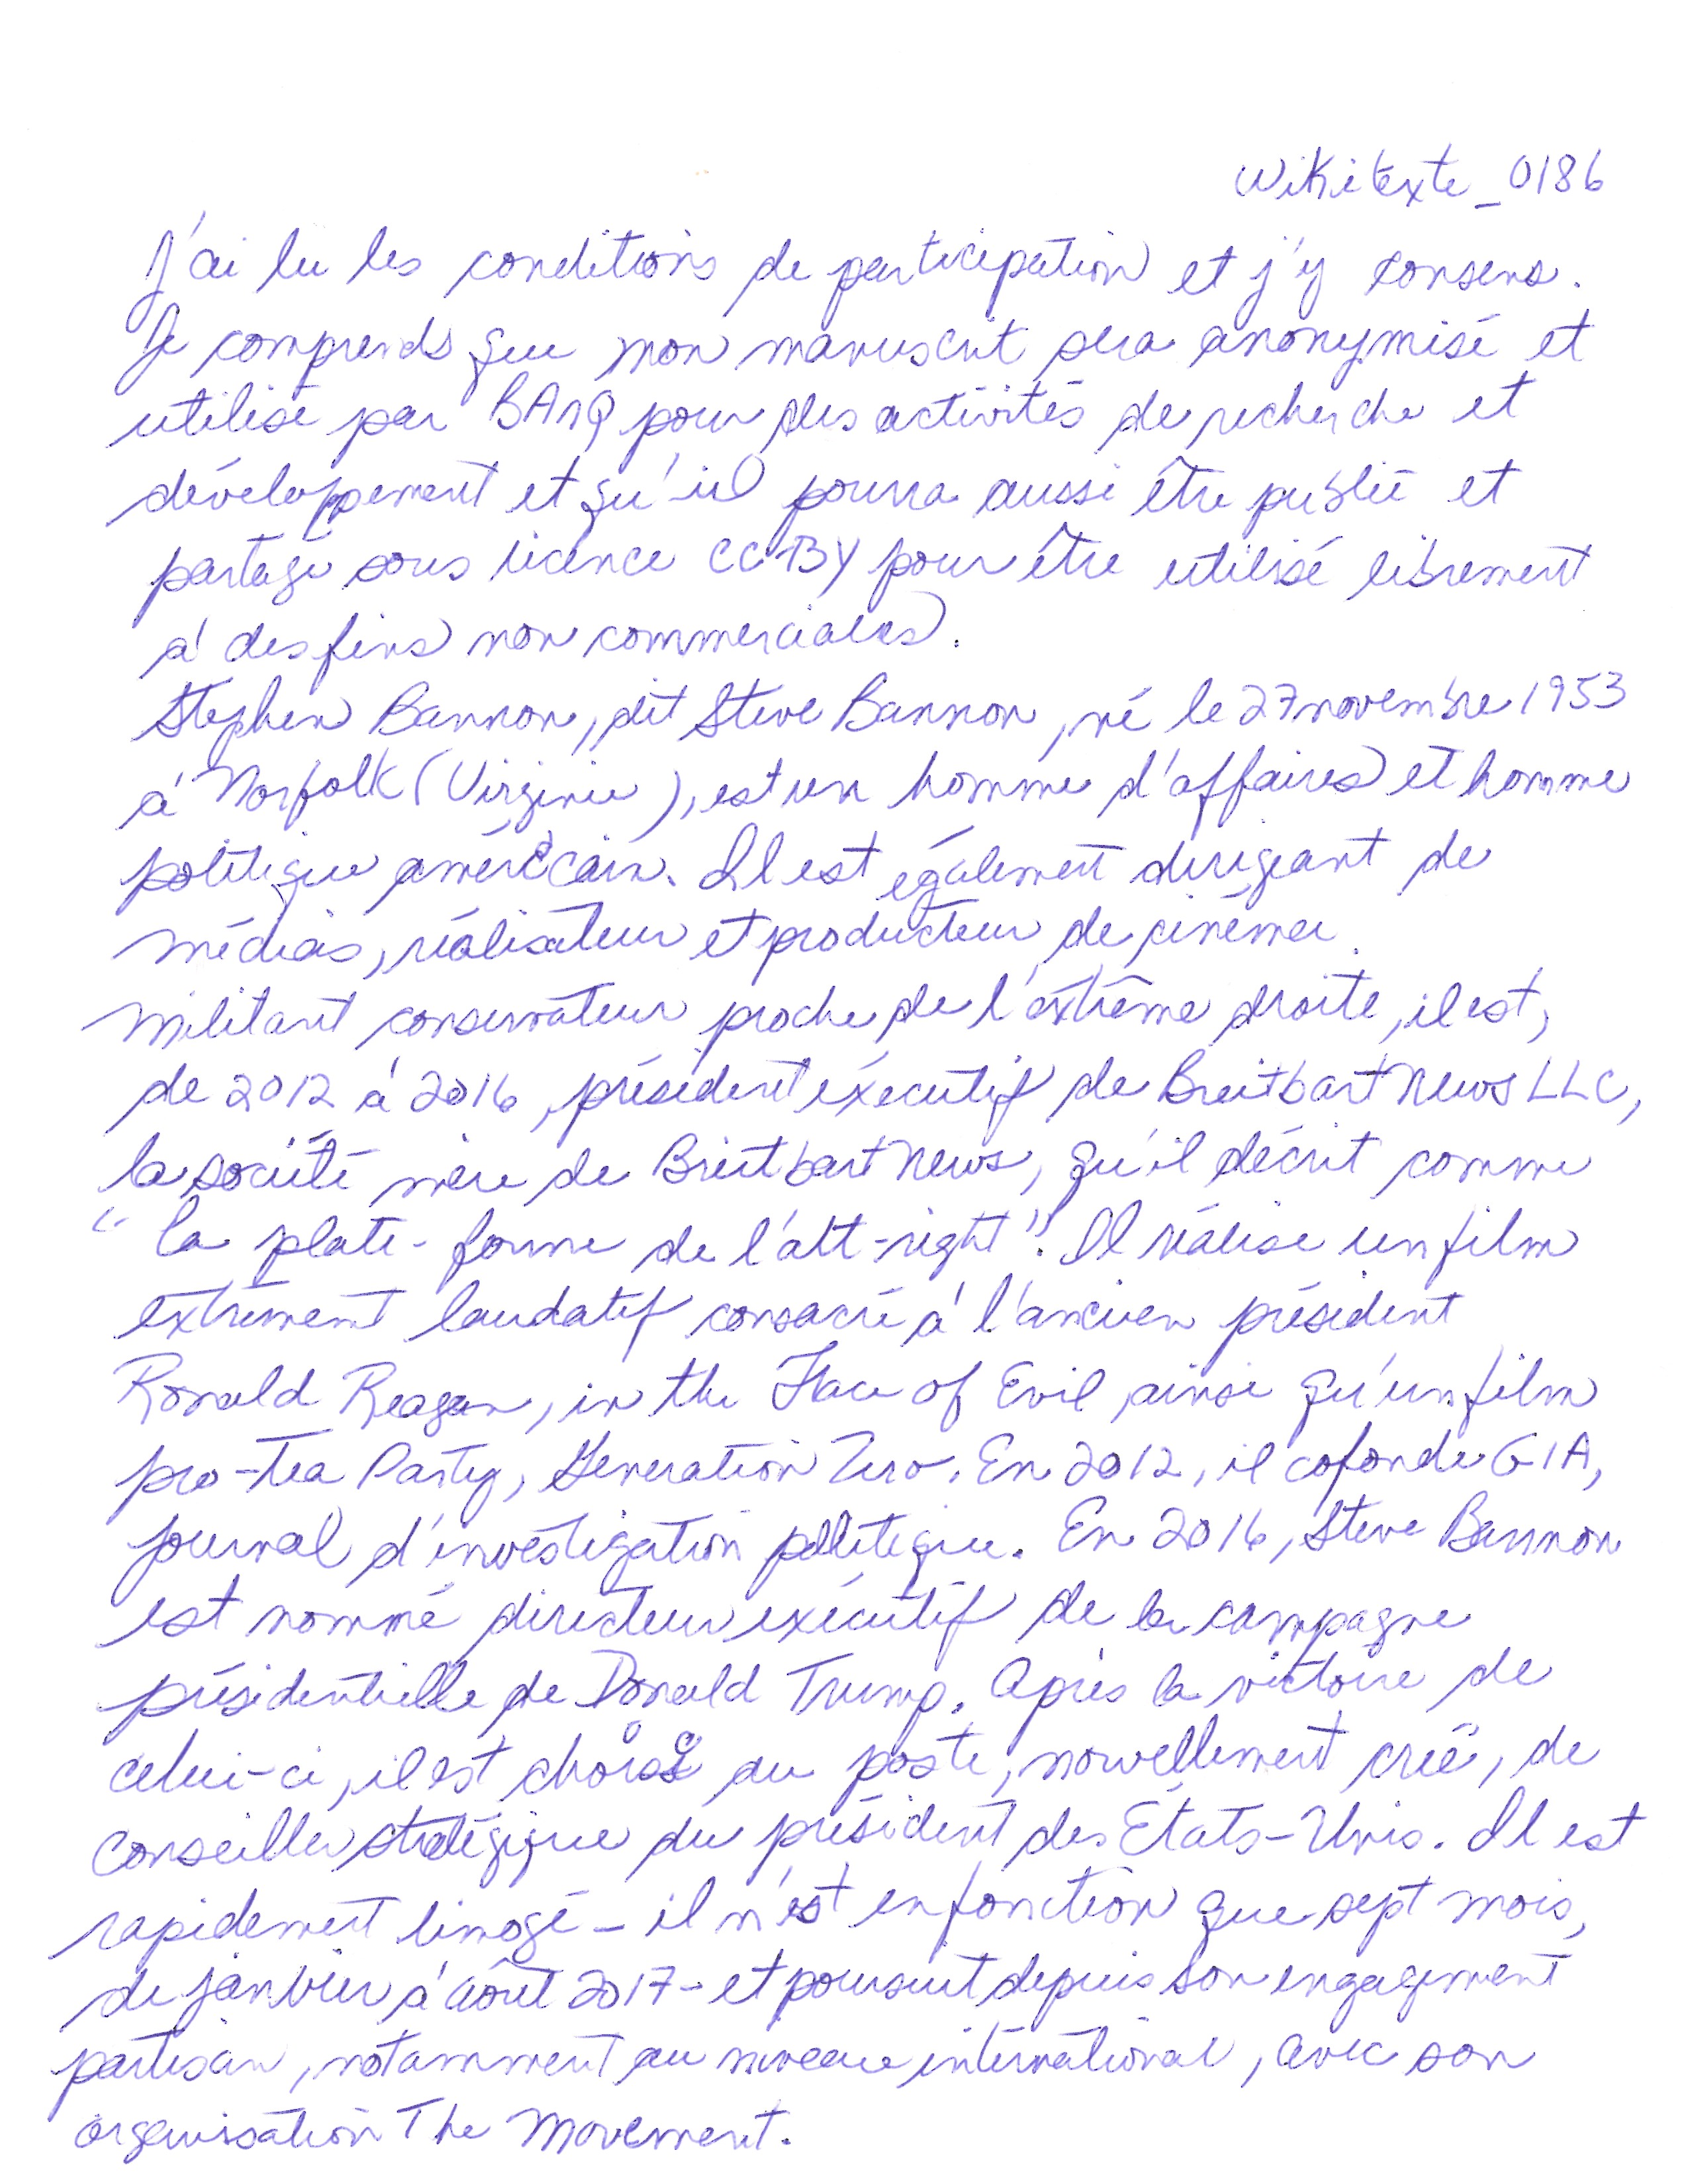 Wikitexte_0186
J'ai lu les conditions de participation et j'y consens.
Je comprends que mon manuscrit sera anonymisé et
utilisé par BAnQ pour des activités de recherche et
développement et qu'il pourra aussi être publié et
partagé sous licence CC BY pour être utilisé librement
à des fins non commerciales.
Stephen Bannon, dit Steve Bannon, né le 27 novembre 1953
à Norfolk (Virginie), est un homme d'affaires et homme
politique américain. Il est également dirigeant de
médias, réalisateur et producteur de cinéma.
Militant conservateur proche de l'extrême droite, il est,
de 2012 à 2016, président éxecutif de Breitbart News LLC,
la société mère de Breitbart News, qu'il décrit comme
"la plate-forme de l'alt-right". Il réalise un film
extrêment laudatif consacré à l'ancien président
Ronald Reagan, in the Face of Evil, ainsi qu'un film
pro-Tea Party, Generation Zero. En 2012, il cofonde GIA,
journal d'investigation politique. En 2016, Steve Bannon
est nommé directeur exécutif de la campagne
présidentielle de Donald Trump. Après la victoire de
celui-ci, il est choisi au poste, nouvellement créé, de
conseiller stratégique du président des États-Unis. Il est
rapidement limogé - il n'est en fonction que sept mois,
de janvier à août 2017 - et poursuit depuis son engagement
partisan, notamment au niveau international, avec son
organisation The Movement.